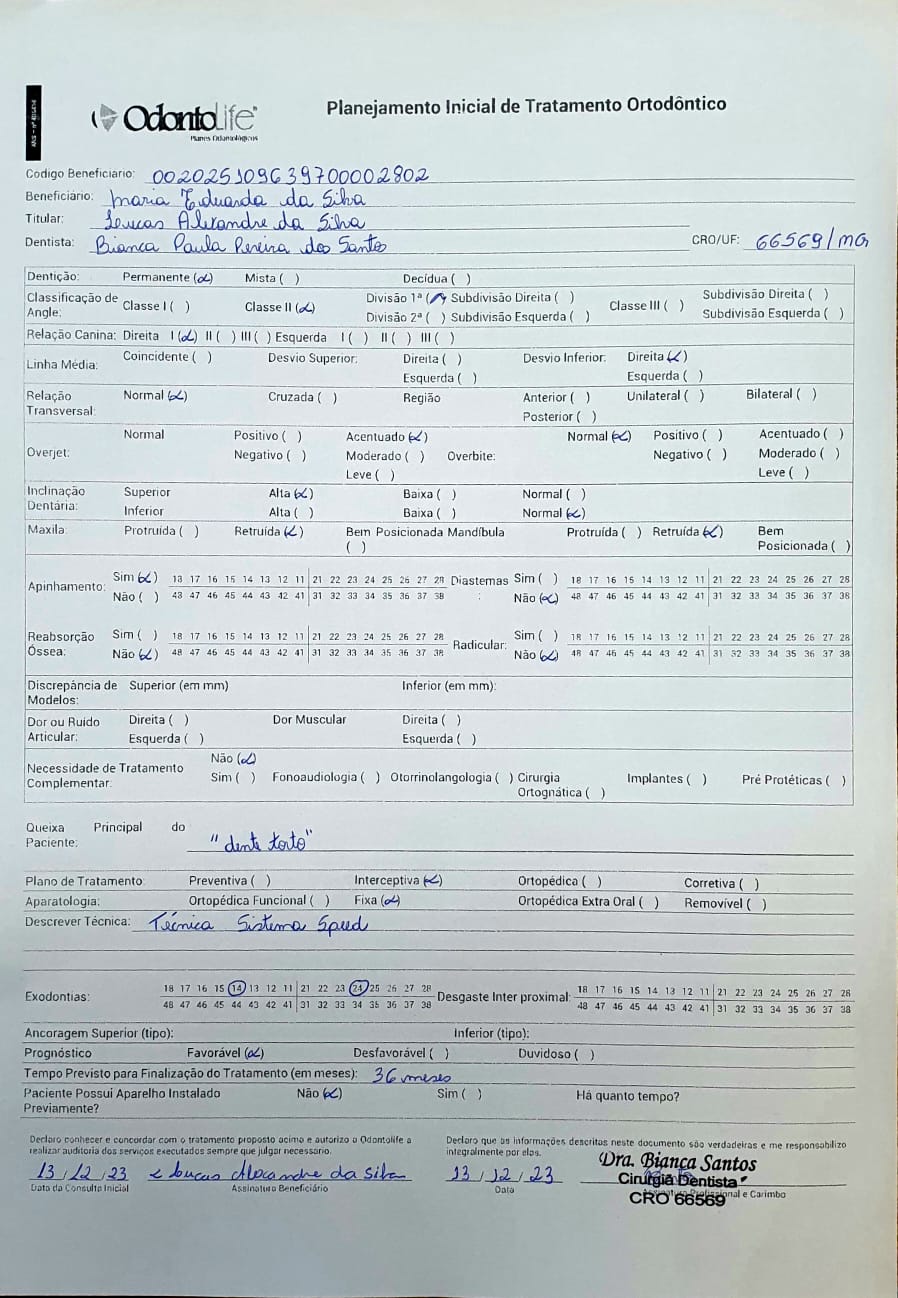 ODontoLife
Planos Odontológicos
Planejamento Inicial de Tratamento Ortodôntico
Código Beneficiário: 002025109639700002802
Beneficiário: Maria Eduarda da Silva
Titular: Loucas Alexandre da Silva
Dentista: Bianca Paula Pereira dos Santos CRO/UF: 66569/MG
Dentição: Permanente (x) Mista ( ) Decídua ( )
Classificação de Angle: Classe I ( ) Classe II (x) Divisão 1ª (x) Subdivisão Direita ( ) Classe III ( ) Subdivisão Direita ( )
Divisão 2ª ( ) Subdivisão Esquerda ( ) Subdivisão Esquerda ( )
Relação Canina: Direita I (x) II ( ) III ( ) Esquerda I ( ) II ( ) III ( )
Linha Média: Coincidente ( ) Desvio Superior: Direita ( ) Desvio Inferior: Direita (x)
Esquerda ( ) Esquerda ( )
Relação Transversal: Normal (x) Cruzada ( ) Região Anterior ( ) Unilateral ( ) Bilateral ( )
Posterior ( )
Overjet: Normal Positivo ( ) Acentuado (x) Overbite: Normal (x) Positivo ( ) Acentuado ( )
Negativo ( ) Moderado ( ) Negativo ( ) Moderado ( )
Leve ( ) Leve ( )
Inclinação Dentária: Superior Alta (x) Baixa ( ) Normal ( )
Inferior Alta ( ) Baixa ( ) Normal (x)
Maxila: Protruída ( ) Retruída (x) Bem Posicionada ( ) Mandíbula Protruída ( ) Retruída (x) Bem Posicionada ( )
Apinhamento: Sim (x) 18 17 16 15 14 13 12 11 21 22 23 24 25 26 27 28 Diastemas: Sim ( ) 18 17 16 15 14 13 12 11 21 22 23 24 25 26 27 28
Não ( ) 48 47 46 45 44 43 42 41 31 32 33 34 35 36 37 38 Não (x) 48 47 46 45 44 43 42 41 31 32 33 34 35 36 37 38
Reabsorção Óssea: Sim ( ) 18 17 16 15 14 13 12 11 21 22 23 24 25 26 27 28 Radicular: Sim ( ) 18 17 16 15 14 13 12 11 21 22 23 24 25 26 27 28
Não (x) 48 47 46 45 44 43 42 41 31 32 33 34 35 36 37 38 Não (x) 48 47 46 45 44 43 42 41 31 32 33 34 35 36 37 38
Discrepância de Modelos: Superior (em mm) Inferior (em mm):
Dor ou Ruido Articular: Direita ( ) Dor Muscular Direita ( )
Esquerda ( ) Esquerda ( )
Necessidade de Tratamento Complementar: Não (x)
Sim ( ) Fonoaudiologia ( ) Otorrinolangologia ( ) Cirurgia Ortognática ( ) Implantes ( ) Pré Protéticas ( )
Queixa Principal do Paciente: "dente torto"
Plano de Tratamento: Preventiva ( ) Interceptiva (x) Ortopédica ( ) Corretiva ( )
Aparatologia: Ortopédica Funcional ( ) Fixa (x) Ortopédica Extra Oral ( ) Removível ( )
Descrever Técnica: Técnica Sistema Speed
Exodontias: 18 17 16 15 14 13 12 11 21 22 23 24 25 26 27 28 Desgaste Inter proximal: 18 17 16 15 14 13 12 11 21 22 23 24 25 26 27 28
48 47 46 45 44 43 42 41 31 32 33 34 35 36 37 38 48 47 46 45 44 43 42 41 31 32 33 34 35 36 37 38
Ancoragem Superior (tipo): Inferior (tipo):
Prognóstico Favorável (x) Desfavorável ( ) Duvidoso ( )
Tempo Previsto para Finalização do Tratamento (em meses): 36 meses
Paciente Possui Aparelho Instalado Previamente? Não (x) Sim ( ) Há quanto tempo?
Declaro conhecer e concordar com o tratamento proposto acima e autorizo a Odontolife a
realizar auditoria dos serviços executados sempre que julgar necessário.
Declaro que as informações descritas neste documento são verdadeiras e me responsabilizo
integralmente por elas.
13/12/23 x Loucas Alexandre da Silva 13/12/23
Data da Consulta Inicial Assinatura Beneficiário Data
Dra. Bianca Santos
Cirurgiã Dentista
Assinatura Profissional e Carimbo
CRO 66569